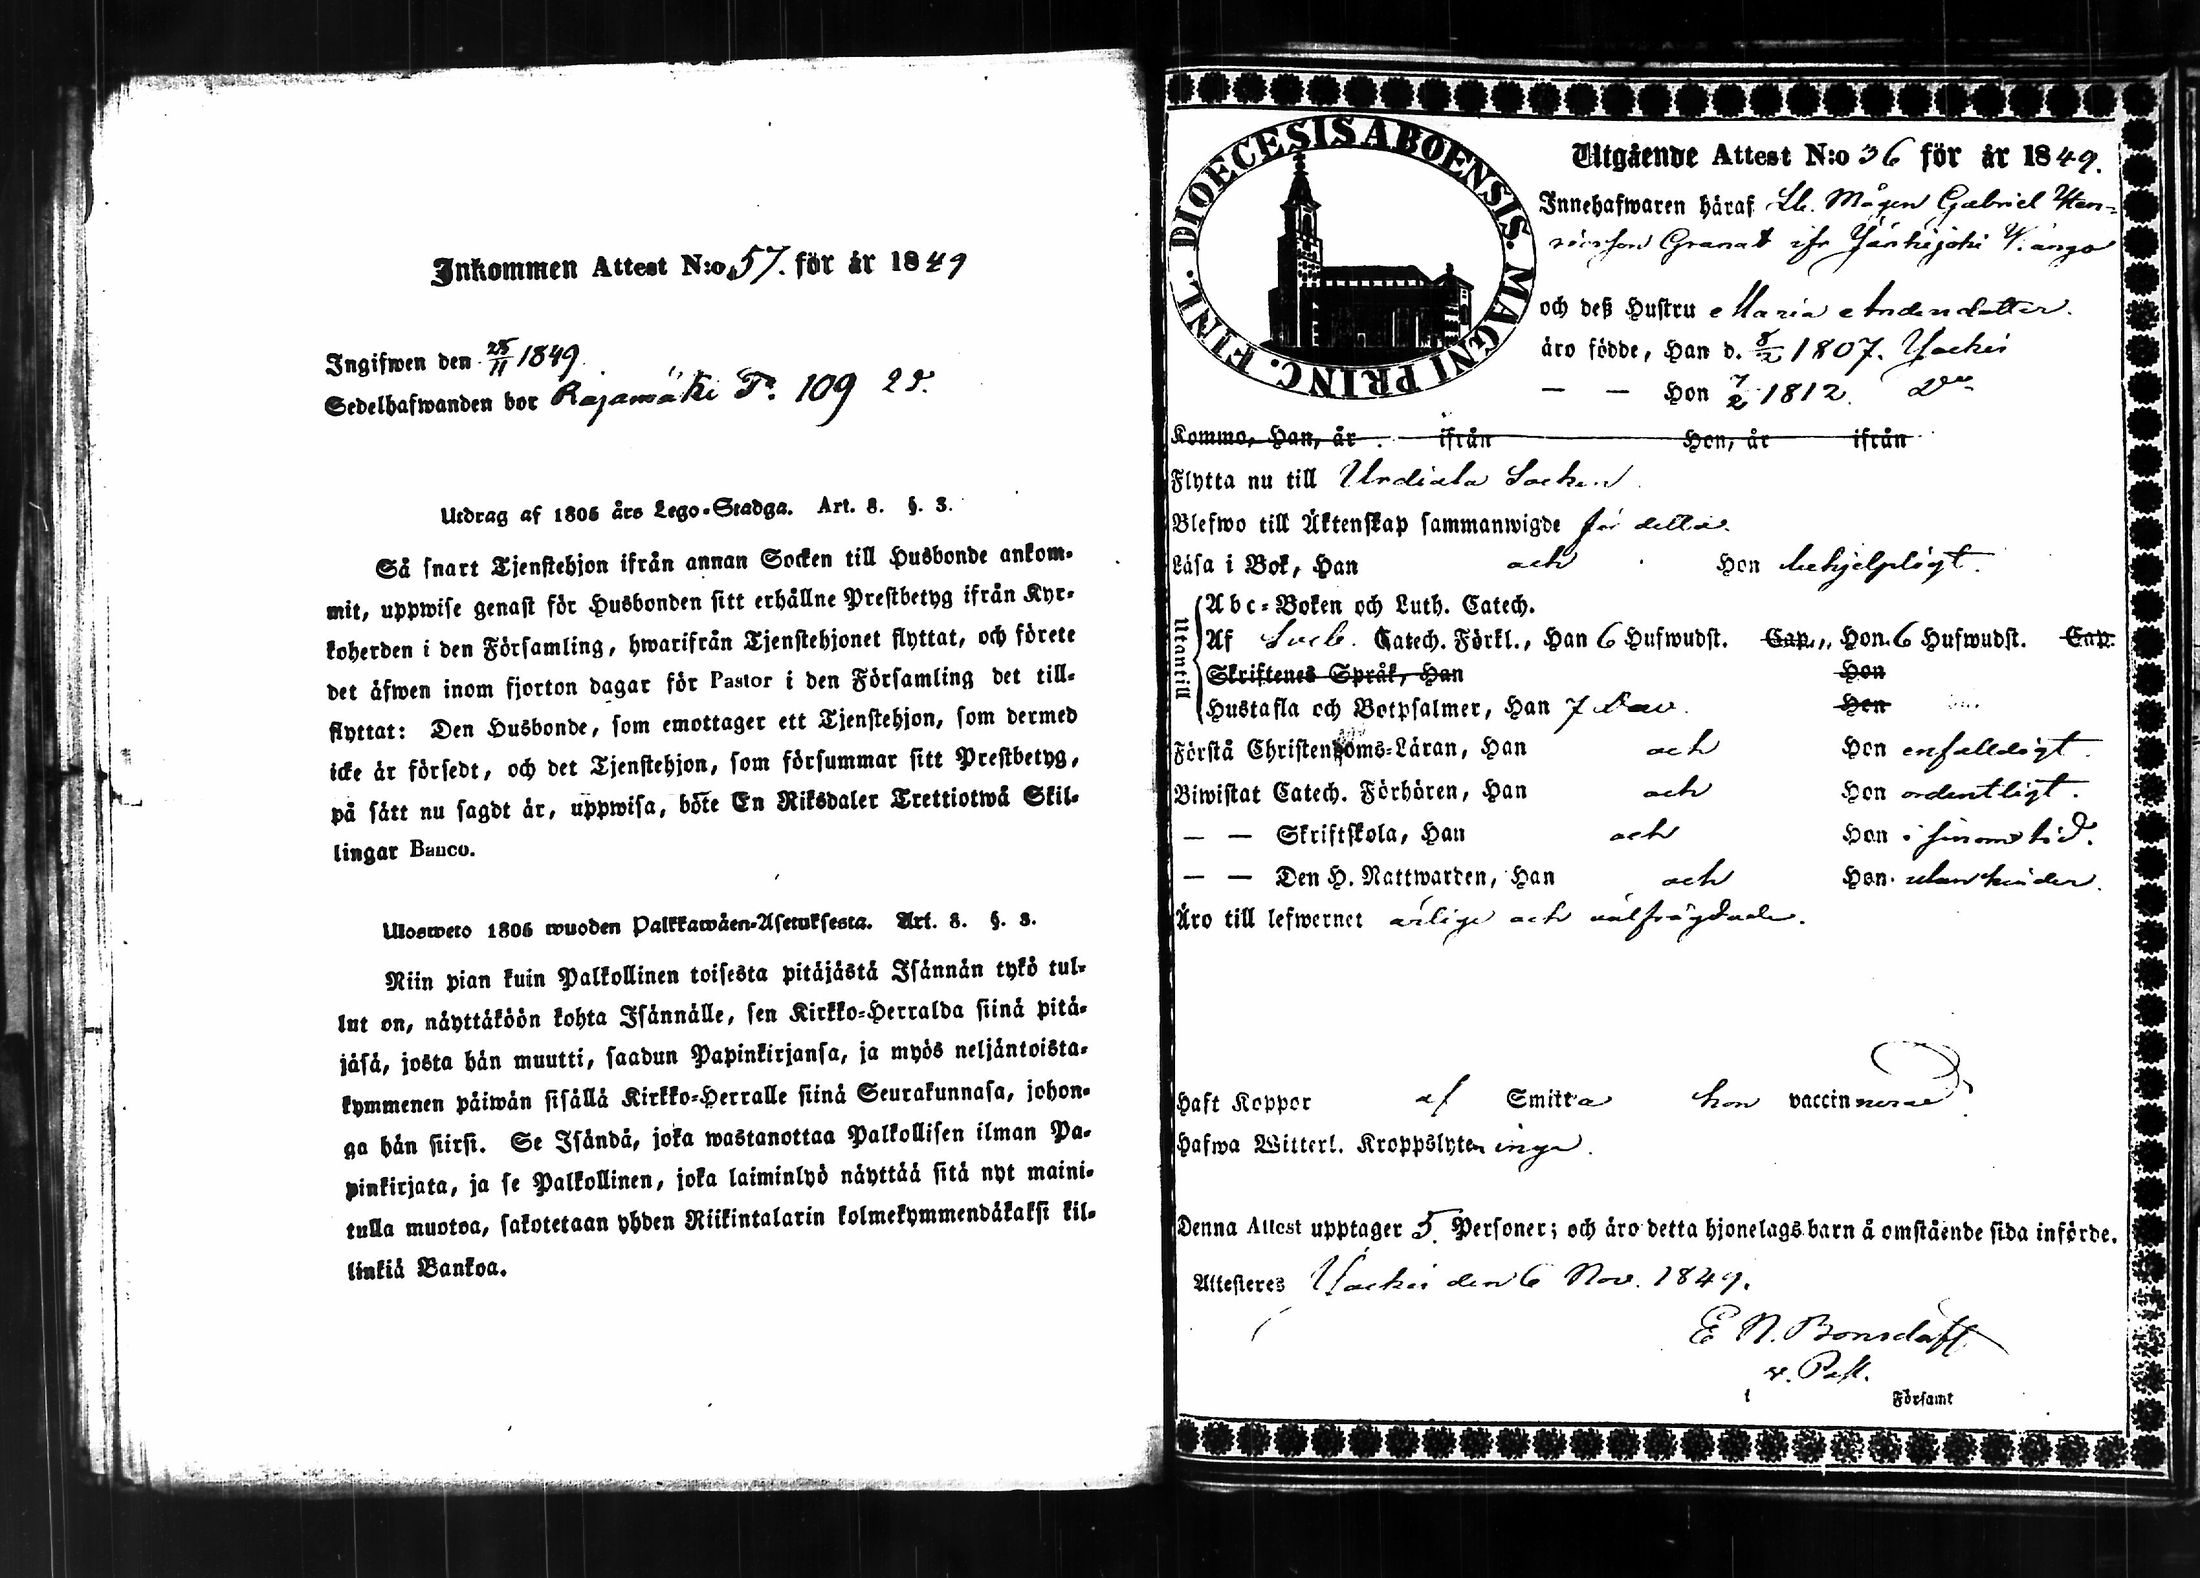 Inkommen Attest N:o 57. för år 1849
Ingifwen den 25/11 1849.
Sedelhafwanden bor Rajamäki T. 109
Utdrag af 1805 års Lego-Stadga. Art. 8. §. 3.
Så snart Tjenstehjon ifrån annan Socken till Husbonde ankom-
mit, uppwise genast för Husbonden sitt erhållne Prestbetyg ifrån Kyr-
koherden i den Församling, hwarifrån Tjenstehjonet flyttat, och förete
det äfwen inom fjorton dagar för Pastor i den Församling det till-
flyttat: Den Husbonde, som emottager ett Tjenstehjon, som dermed
icke är försedt, och det Tjenstehjon, som försummar sitt Prestbetyg,
på sätt nu sagdt är, uppwisa, böte En Riksdaler Trettiotwå Skil-
lingar Banco.
Ulosweto 1805 wuoden Palkkawäen-Asetuksesta. Art. 8. §. 3.
Niin pian kuin Palkollinen toisesta pitäjästä Isännän tykö tul-
lut on, näyttäköön kohta Isännälle, sen Kirkko-Herralda siinä pitä-
jäsä, josta hän muutti, saadun Papinkirjansa, ja myös neljäntoista-
kymmenen päiwän sisällä Kirkko-Herralle siinä Seurakunnasa, johon-
ga hän siirsi. Se Isändä, joka wastanottaa Palkollisen ilman Pa-
pinkirjata, ja se Palkollinen, joka laiminlyö näyttää sitä nyt maini-
tulla muotoa, sakotetaan yhden Riikintalarin kolmekymmendäkaksi kil-
linkiä Bankoa.
FINL. DIOECESIS ABOENSIS. MAGNI PRINC.
Utgående Attest N:o 36 för år 1849.
Innehafwaren häraf Mågen Gabriel Hen-
ricsson Granat ifr Järhijoki
och deß Hustru Maria Andersdotter.
äro födde, Han d. 8/2 1807.
— — Hon 7/2 1812.
Komma, Han, år ifrån Hon, år ifrån
Flytta nu till Urdiala Socken.
Blefwo till Äktenskap sammanwigde för detta.
Läsa i Bok, Han och Hon behjelpligt.
Utantill
Abc-Boken och Luth. Catech.
Af Sveb. Catech. Förkl., Han 6 Hufwudst. Cap., Hon 6 Hufwudst. Cap.
Skriftenes Språk, Han Hon
Hustafla och Botpsalmer, Han 7 Dav. Hon
Förstå Christendoms-Läran, Han och Hon enfalldigt.
Biwistat Catech. Förhören, Han och Hon ordentligt.
— — Skriftskola, Han och Hon i sinom tid.
— — Den H. Nattwarden, Han och Hon utan hinder.
Äro till lefwernet ärlige och välfrägdade.
Haft Koppor af Smitta hon vaccinerad.
Hafwa Witterl. Kroppslyten inga.
Denna Attest upptager 5. Personer; och äro detta hjonelags barn å omstående sida införde.
Attesteres den 6 Nov. 1849.
E N. Bonsdorff
v. Past.
i Församl